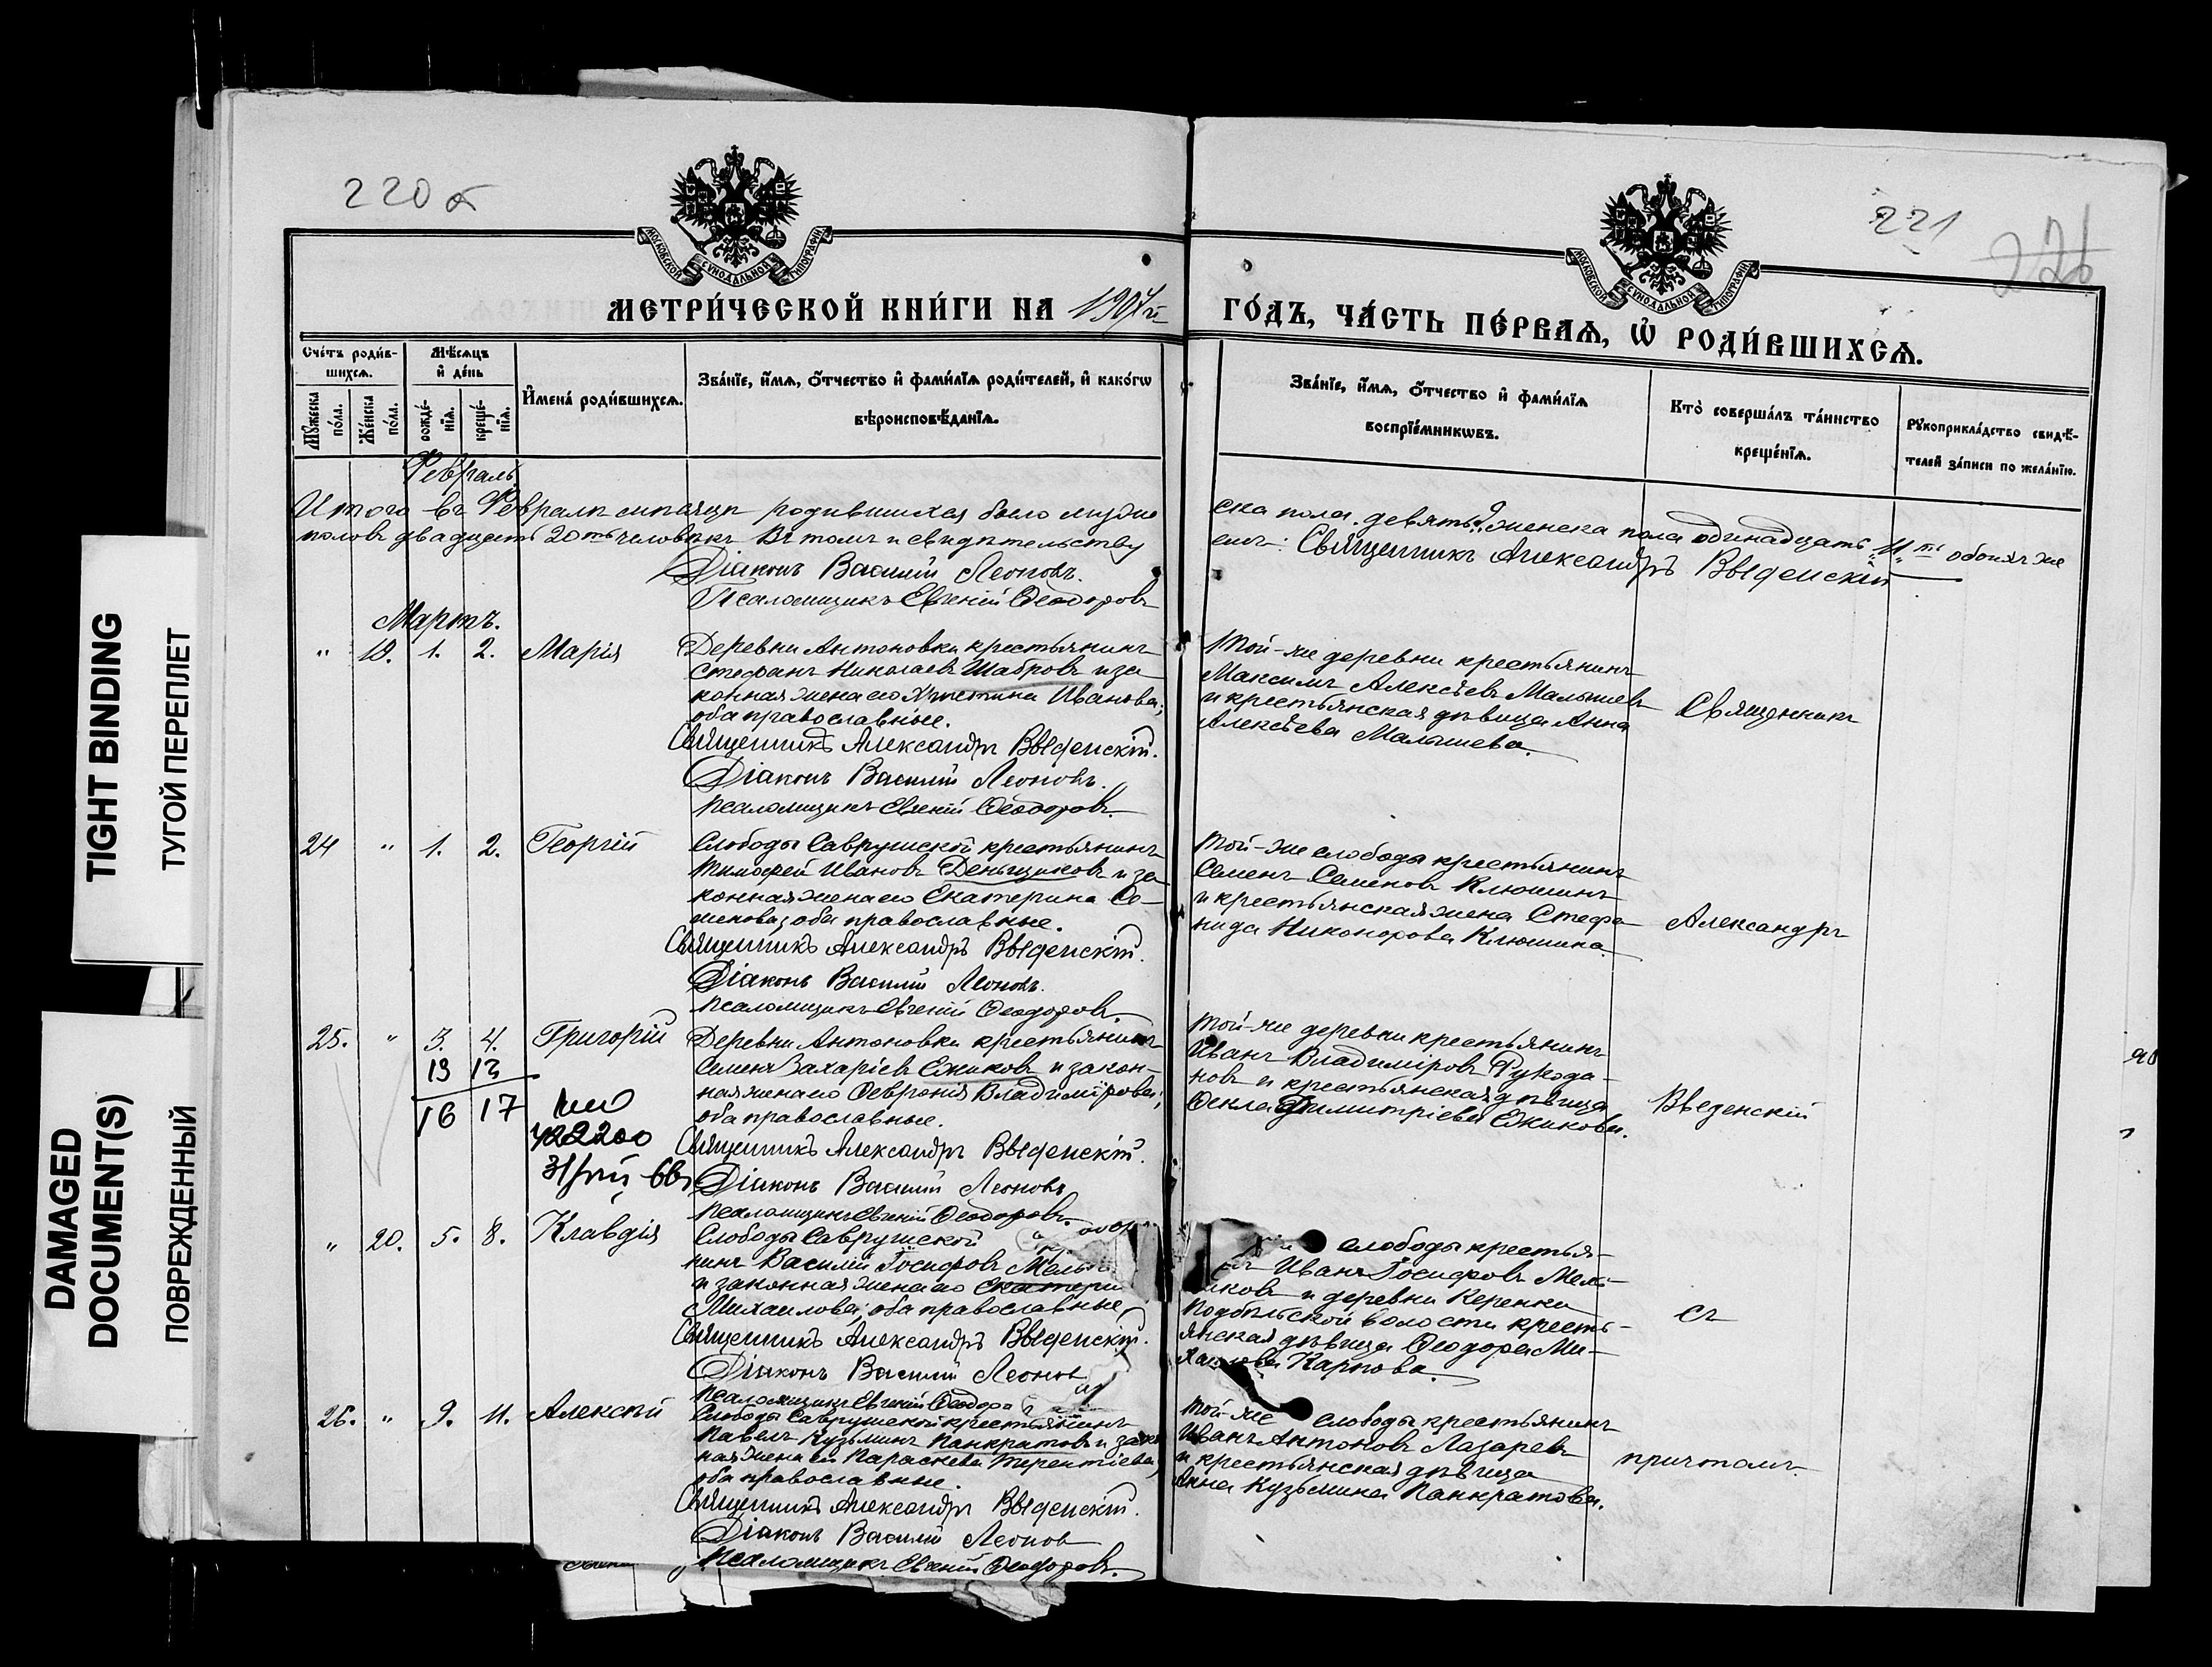 220 об
221
МОСКОВСКОЙ СУНОДАЛЬНОЙ ТИПОГРАФІИ
МОСКОВСКОЙ СУНОДАЛЬНОЙ ТИПОГРАФІИ
МЕТРИ́ЧЕСКОЙ КНИ́ГИ НА 1907й
ГО́ДЪ, ЧА́СТЬ ПЕ́РВАѦ, Ѡ҆ РОДИ́ВШИХСѦ.
Сче́тъ роди́в-
шихсѧ.
Мꙋ́жеска по́ла.
Же́нска по́ла.
Мѣ́сѧцъ
и҆ де́нь
рожде́-
нїѧ.
креще́-
нїѧ.
И҆мена̀ роди́вшихсѧ.
Зва́нїе, и҆́мѧ, ѻ҆́тчество и҆ фами́лїѧ роди́телей, и҆ како́гѡ
вѣроисповѣ́данїѧ.
Зва́нїе, и҆́мѧ, ѻ҆́тчество и҆ фами́лїѧ
воспрїе́мникѡвъ.
Кто̀ соверша́лъ та́инство
креще́нїѧ.
Рꙋкоприкла́дство свидѣ́-
телей за́писи по жела́нїю.
Февраль
Итого въ Февралѣ мѣсяцѣ родившихся было муже
ска пола девять 9, женска пола одинадцать 11ть обоихъ же
половъ двадцать 20ть человѣкъ. Въ томъ и свидѣтельству
емъ: Священникъ Александръ Введенскій
Діаконъ Василій Леоновъ.
Псаломщикъ Евгеній Ѳеодоровъ
Мартъ.
" 19. 1. 2. Марія
Деревни Антоновки крестьянинъ
Стефанъ Николаевъ Шабровъ и за
конная жена его Христина Иванова;
оба православные.
Священникъ Александръ Введенскій.
Діаконъ Василій Леоновъ.
Псаломщикъ Евгеній Ѳеодоровъ.
Той-же деревни крестьянинъ
Максимъ Алексѣевъ Малышевъ
и крестьянская дѣвица Анна
Алексѣева Малышева.
Священникъ
24 " 1. 2. Георгій
Слободы Саврушской крестьянинъ
Тимофей Ивановъ Деньщиковъ и за
конная жена его Екатерина Се-
менова; оба православные.
Священникъ Александръ Введенскій.
Діаконъ Василій Леоновъ.
Псаломщикъ Евгеній Ѳеодоровъ.
Той-же слободы крестьянинъ
Семенъ Семеновъ Клюшинъ
и крестьянская жена Стефа
нида Никонорова Клюшина.
Александръ
25. " 3. 4. Григорій
13 13
16 17
Деревни Антоновки крестьянинъ
Семенъ Захаріевъ Ежиковъ и закон-
ная жена его Ѳевронія Владимірова;
оба православные.
Священникъ Александръ Введенскій.
Діаконъ Василій Леоновъ
Псаломщикъ Евгеній Ѳеодоровъ.
Той-же деревни крестьянинъ
Иванъ Владиміровъ Рукода-
новъ и крестьянская дѣвица
Ѳекла Димитріева Ежикова.
Введенскій
" 20. 5. 8. Клавдія
Слободы Саврушской
нинъ Василій Іосифовъ
и законная жена его Екатери
Михаилова; оба православные
Священникъ Александръ Введенскій.
Діаконъ Василій Леонов
Псаломщикъ Евгеній Ѳеодоро
слободы крестья-
Иванъ Іосифовъ Мель-
никовъ и деревни Керенка
Подбѣльской волости кресть-
янская дѣвица Ѳеодора Ми-
хаилова Карпова.
съ
26. " 9. 11. Алексѣй
Слободы Саврушской крестьянинъ
Павелъ Кузьминъ Панкратовъ и зако
ная жена его Параскева Терентіева,
оба православные.
Священникъ Александръ Введенскій.
Діаконъ Василій Леонов
Псаломщикъ Евгеній Ѳеодоровъ.
Той-же слободы крестьянинъ
Иванъ Антоновъ Лазаревъ
и крестьянская дѣвица
Анна Кузьмина Панкратова.
причтомъ.
TIGHT BINDING
ТУГОЙ ПЕРЕПЛЕТ
DAMAGED
DOCUMENT(S)
ПОВРЕЖДЕННЫЙ